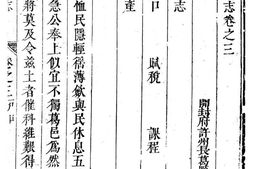 志卷之三
開封府許州長葛
志
口 賦稅 課程
產
恤民隱輕徭薄歛與民休息五
急公奉上似宜不獨葛邑爲然
將莫及令茲土者催科維艱得
志 卷之三